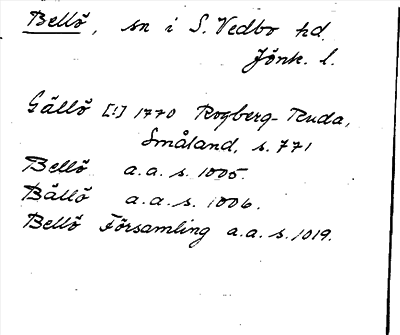 Bellö, sn i S. Vedbo hd.
Jönk. l.
Gällö [!] 1770 Rogberg-Ruda,
Småland, s. 771
Bellö a.a. s. 1005.
Bällö a.a. s. 1006.
Bellö Församling a.a. s. 1019.